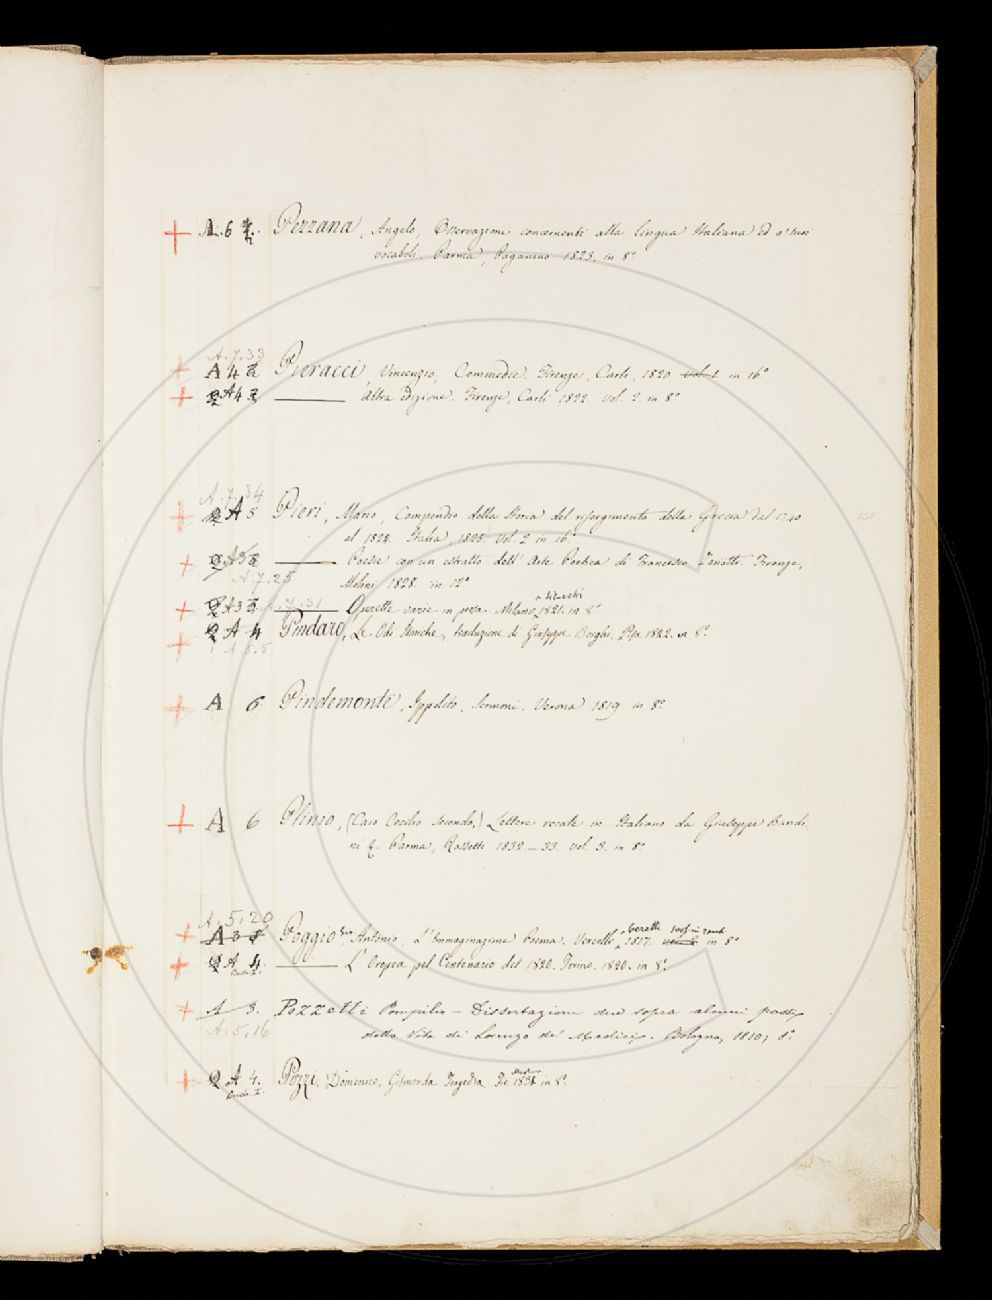 A. 6 Pezzana, Angelo, Osservazioni concernenti alla lingua Italiana ed a' suoi
vocaboli. Parma, Paganino 1823. in 8.º
A. 7. 33
A 4 Pieracci, Vincenzio, Commedie. Firenze, Carli, 1820 vol. 1. in 16.º
A 4 altra edizione. Firenze, Carli 1822. vol. 2 in 8.º
A. 7. 34
A 5 Pieri, Mario, Compendio della Storia del risorgimento della Grecia dal 1740
al 1824. Italia, 1828. vol. 2 in 16.º
A 3 Poesie con un estratto dell' Arte Poetica di Francesco Zanotti. Firenze,
A. 7. 25 Molini 1828. in 12.º
Silvestri
A 3 A. 7. 31 Operette varie in prosa. Milano, 1821. in 8.º
A 4 Pindaro, Le Odi Istmiche, traduzione di Giuseppe Borghi. Pisa 1822. in 8.º
A. 5. 5
A 6 Pindemonte, Ippolito, Sermoni. Verona 1819 in 8.º
A 6 Plinio, (Caio Cecilio Secondo,) Lettere recate in Italiano da Giuseppe Bandi-
ni &. Parma, Rossetti 1832 – 33. vol. 3. in 8.º
A. 5. 20
A 3 Poggio, Antonio, L'Immaginazione Poema. Vercelli, Ceretti 1817. in 8.º
A 4 L'Oropea pel Centenario del 1820. Torino. 1820. in 8.º
A 3. Pozzetti Pompilio – Dissertazioni due sopra alcuni passi
A. 5. 16 della Vita di Lorenzo de' Medici. Bologna, 1810, 8.º
A 4. Pozzi, Domenico, Gismonda Tragedia in 8.º